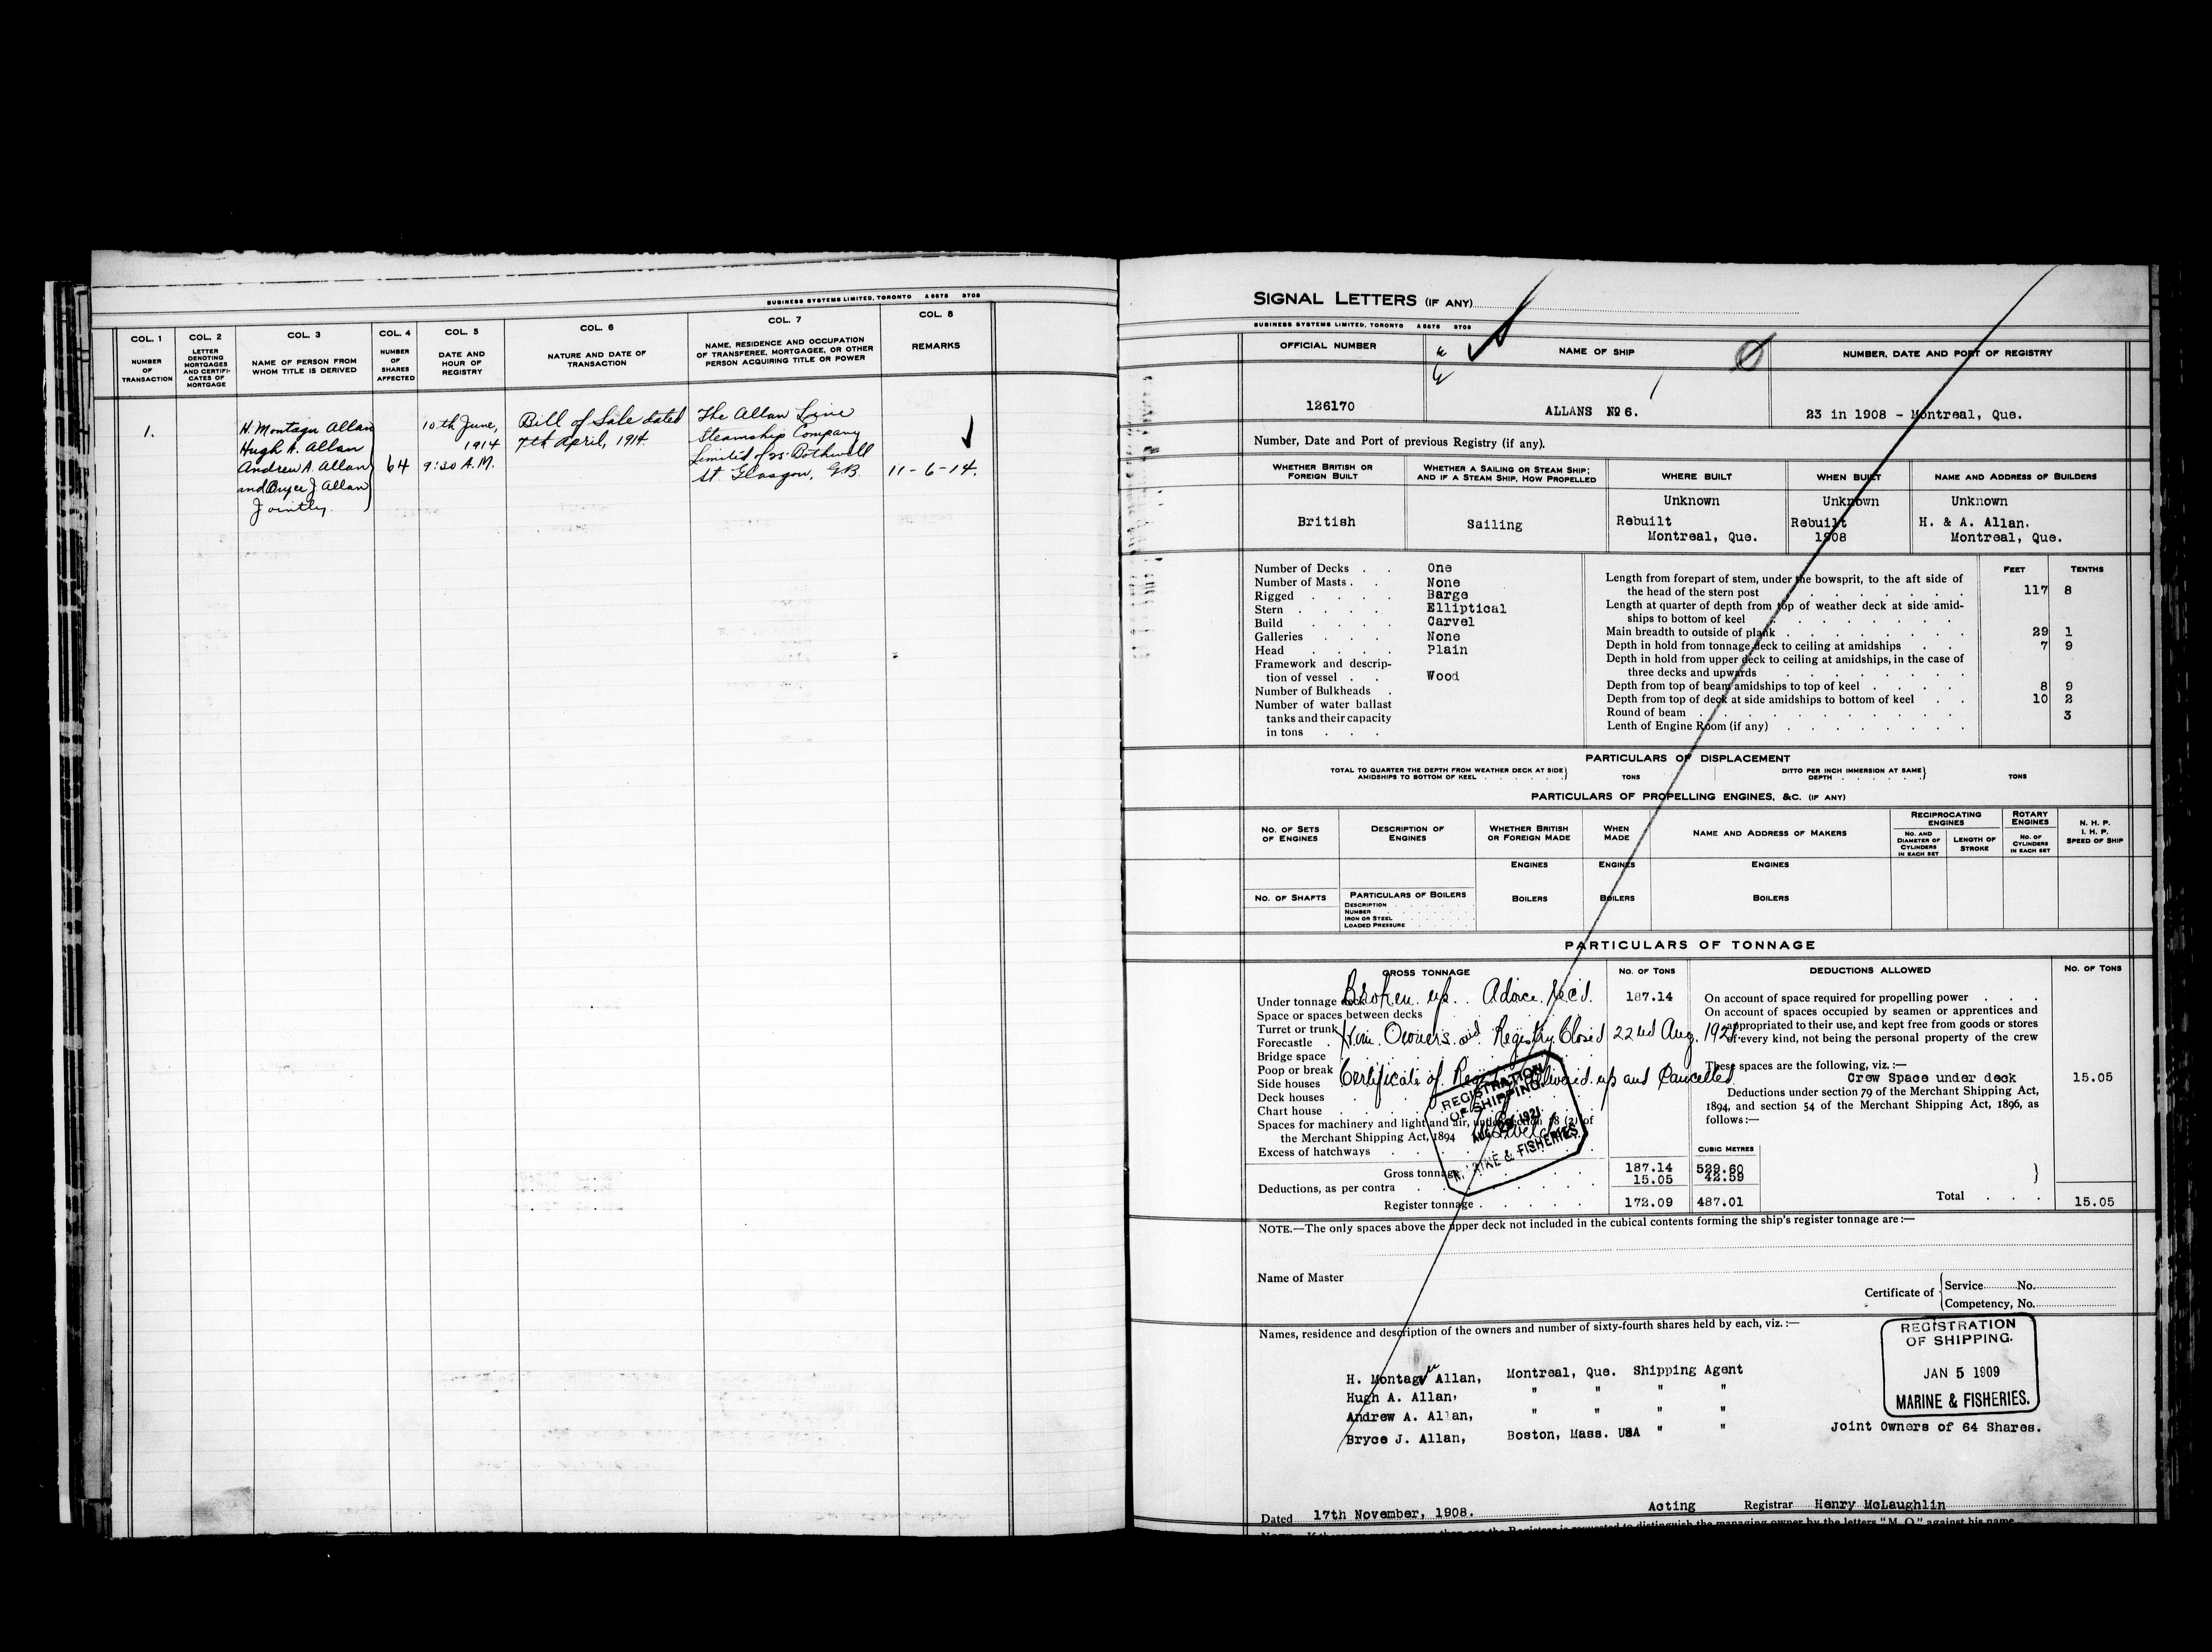 BUSINESS SYSTEMS LIMITED, TORONTO A 5575 3708
COL. 1 COL. 2 COL. 3 COL. 4 COL. 5 COL. 6 COL. 7 COL. 8
NUMBER OF TRANSACTION
LETTER DENOTING MORTGAGES AND CERTIFI-CATES OF MORTGAGE
NAME OF PERSON FROM WHOM TITLE IS DERIVED
NUMBER OF SHARES AFFECTED
DATE AND HOUR OF REGISTRY
NATURE AND DATE OF TRANSACTION
NAME, RESIDENCE AND OCCUPATION OF TRANSFEREE, MORTGAGEE, OR OTHER PERSON ACQUIRING TITLE OR POWER
REMARKS
1.
H. Montagu Allan
Hugh A. Allan
Andrew A. Allan
and Bryce J Allan
Jointly.
64
10th June,
1914
9:30 A.M.
Bill of Sale dated
7th April, 1914.
The Allan Line
Steamship Company
Limited of 25 Bothwell
St. Glasgow, G.B.
11-6-14.
SIGNAL LETTERS (IF ANY)
BUSINESS SYSTEMS LIMITED, TORONTO A 5575 3708
OFFICIAL NUMBER NAME OF SHIP NUMBER, DATE AND PORT OF REGISTRY
126170 ALLANS No 6. 23 in 1908 - Montreal, Que.
Number, Date and Port of previous Registry (if any).
WHETHER BRITISH OR FOREIGN BUILT
WHETHER A SAILING OR STEAM SHIP; AND IF A STEAM SHIP, HOW PROPELLED
WHERE BUILT WHEN BUILT NAME AND ADDRESS OF BUILDERS
Unknown Unknown Unknown
British Sailing Rebuilt Rebuilt H. & A. Allan.
Montreal, Que. 1908 Montreal, Que.
Number of Decks . . One
Number of Masts . . None
Rigged . . . . Barge
Stern . . . . Elliptical
Build . . . . Carvel
Galleries . . . None
Head . . . . Plain
Framework and descrip-
tion of vessel . . Wood
Number of Bulkheads .
Number of water ballast
tanks and their capacity
in tons . . .
FEET TENTHS
Length from forepart of stem, under the bowsprit, to the aft side of
the head of the stern post 117 8
Length at quarter of depth from top of weather deck at side amid-
ships to bottom of keel
Main breadth to outside of plank 29 1
Depth in hold from tonnage deck to ceiling at amidships 7 9
Depth in hold from upper deck to ceiling at amidships, in the case of
three decks and upwards
Depth from top of beam amidships to top of keel 8 9
Depth from top of deck at side amidships to bottom of keel 10 2
Round of beam 3
Lenth of Engine Room (if any)
PARTICULARS OF DISPLACEMENT
TOTAL TO QUARTER THE DEPTH FROM WEATHER DECK AT SIDE AMIDSHIPS TO BOTTOM OF KEEL TONS
DITTO PER INCH IMMERSION AT SAME DEPTH TONS
PARTICULARS OF PROPELLING ENGINES, &C. (IF ANY)
NO. OF SETS OF ENGINES
DESCRIPTION OF ENGINES
WHETHER BRITISH OR FOREIGN MADE
WHEN MADE
NAME AND ADDRESS OF MAKERS
RECIPROCATING ENGINES
NO. AND DIAMETER OF CYLINDERS IN EACH SET
LENGTH OF STROKE
ROTARY ENGINES
NO. OF CYLINDERS IN EACH SET
N. H. P.
I. H. P.
SPEED OF SHIP
ENGINES ENGINES ENGINES
NO. OF SHAFTS PARTICULARS OF BOILERS BOILERS BOILERS BOILERS
DESCRIPTION
NUMBER
IRON OR STEEL
LOADED PRESSURE
PARTICULARS OF TONNAGE
GROSS TONNAGE NO. OF TONS DEDUCTIONS ALLOWED NO. OF TONS
Under tonnage deck 187.14
Space or spaces between decks
Turret or trunk
Forecastle
Bridge space
Poop or break
Side houses
Deck houses
Chart house
Spaces for machinery and light and air, under section 78 (2) of
the Merchant Shipping Act, 1894
Excess of hatchways
Broken up. Advice rec'd.
from Owners and Registry Closed 22nd Aug. 1921.
Certificate of Registry delivered up and Cancelled.
REGISTRATION
OF SHIPPING.
AUG 1921
MARINE & FISHERIES
On account of space required for propelling power
On account of spaces occupied by seamen or apprentices and
appropriated to their use, and kept free from goods or stores
of every kind, not being the personal property of the crew
These spaces are the following, viz. :—
Crew Space under deck 15.05
Deductions under section 79 of the Merchant Shipping Act,
1894, and section 54 of the Merchant Shipping Act, 1896, as
follows :—
CUBIC METRES
Gross tonnage 187.14 529.60
Deductions, as per contra 15.05 42.59
Register tonnage 172.09 487.01
Total 15.05
NOTE.—The only spaces above the upper deck not included in the cubical contents forming the ship's register tonnage are :—
Name of Master
Certificate of Service No.
Competency, No.
Names, residence and description of the owners and number of sixty-fourth shares held by each, viz. :—
REGISTRATION
OF SHIPPING.
JAN 5 1909
MARINE & FISHERIES.
H. Montagu Allan, Montreal, Que. Shipping Agent
Hugh A. Allan, " " " "
Andrew A. Allan, " " " "
Bryce J. Allan, Boston, Mass. USA " "
Joint Owners of 64 Shares.
Dated 17th November, 1908. Acting Registrar Henry McLaughlin